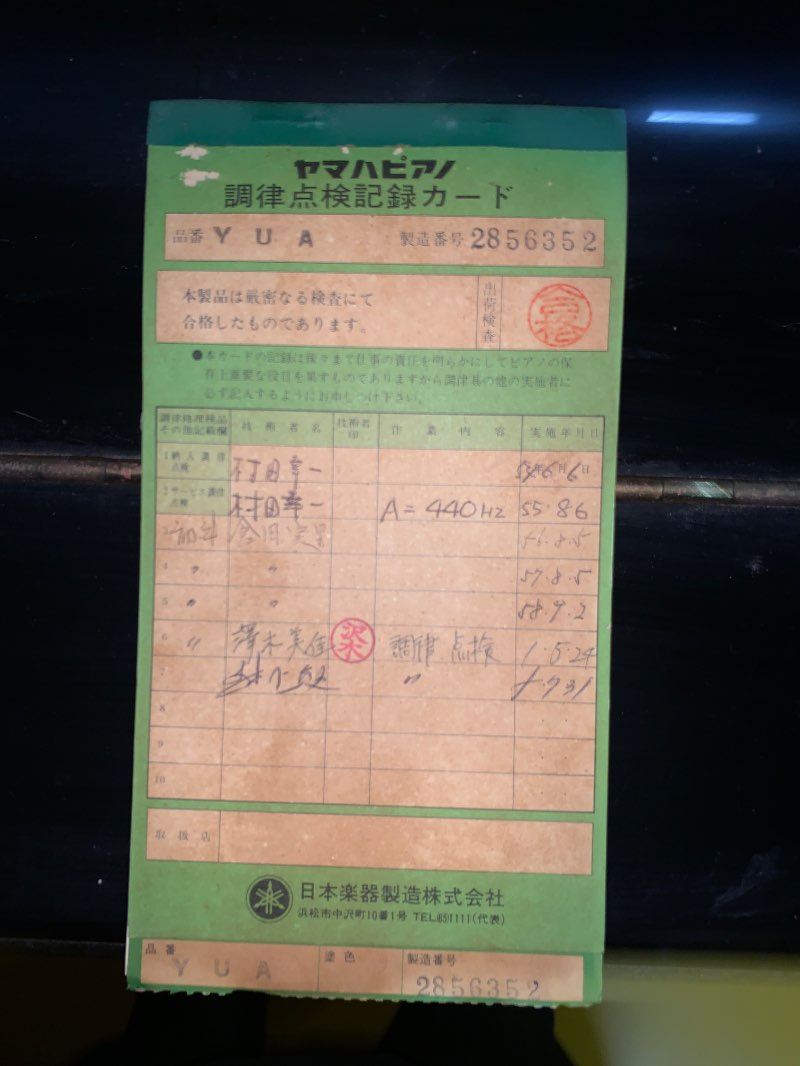 ヤマハピアノ
調律点検記録カード
品番 YUA 製造番号 2856352
本製品は厳密なる検査にて
合格したものであります。
出荷検査
合格
●本カードの記録は後々まで仕事の責任を明らかにしてピアノの保
存上重要な役目を果すものでありますから調律其の他の実施者に
必ず記入するようにお申しつけ下さい。
調律処理検品
その他記載欄 技術者名 技術者印 作業内容 実施年月日
1 納入調律点検 村田幸一 年6月6日
2 サービス調律点検 村田幸一 A=440Hz 55.8.6
56.8.5
4 〃 〃 57.8.5
5 〃 〃 58.9.2
6 〃 澤木美佳 沢木 調律 点検 1.5.24
7 〃
8
9
10
取扱店
日本楽器製造株式会社
浜松市中沢町10番1号 TEL(65)1111(代表)
品番 YUA 塗色 製造番号 2856352